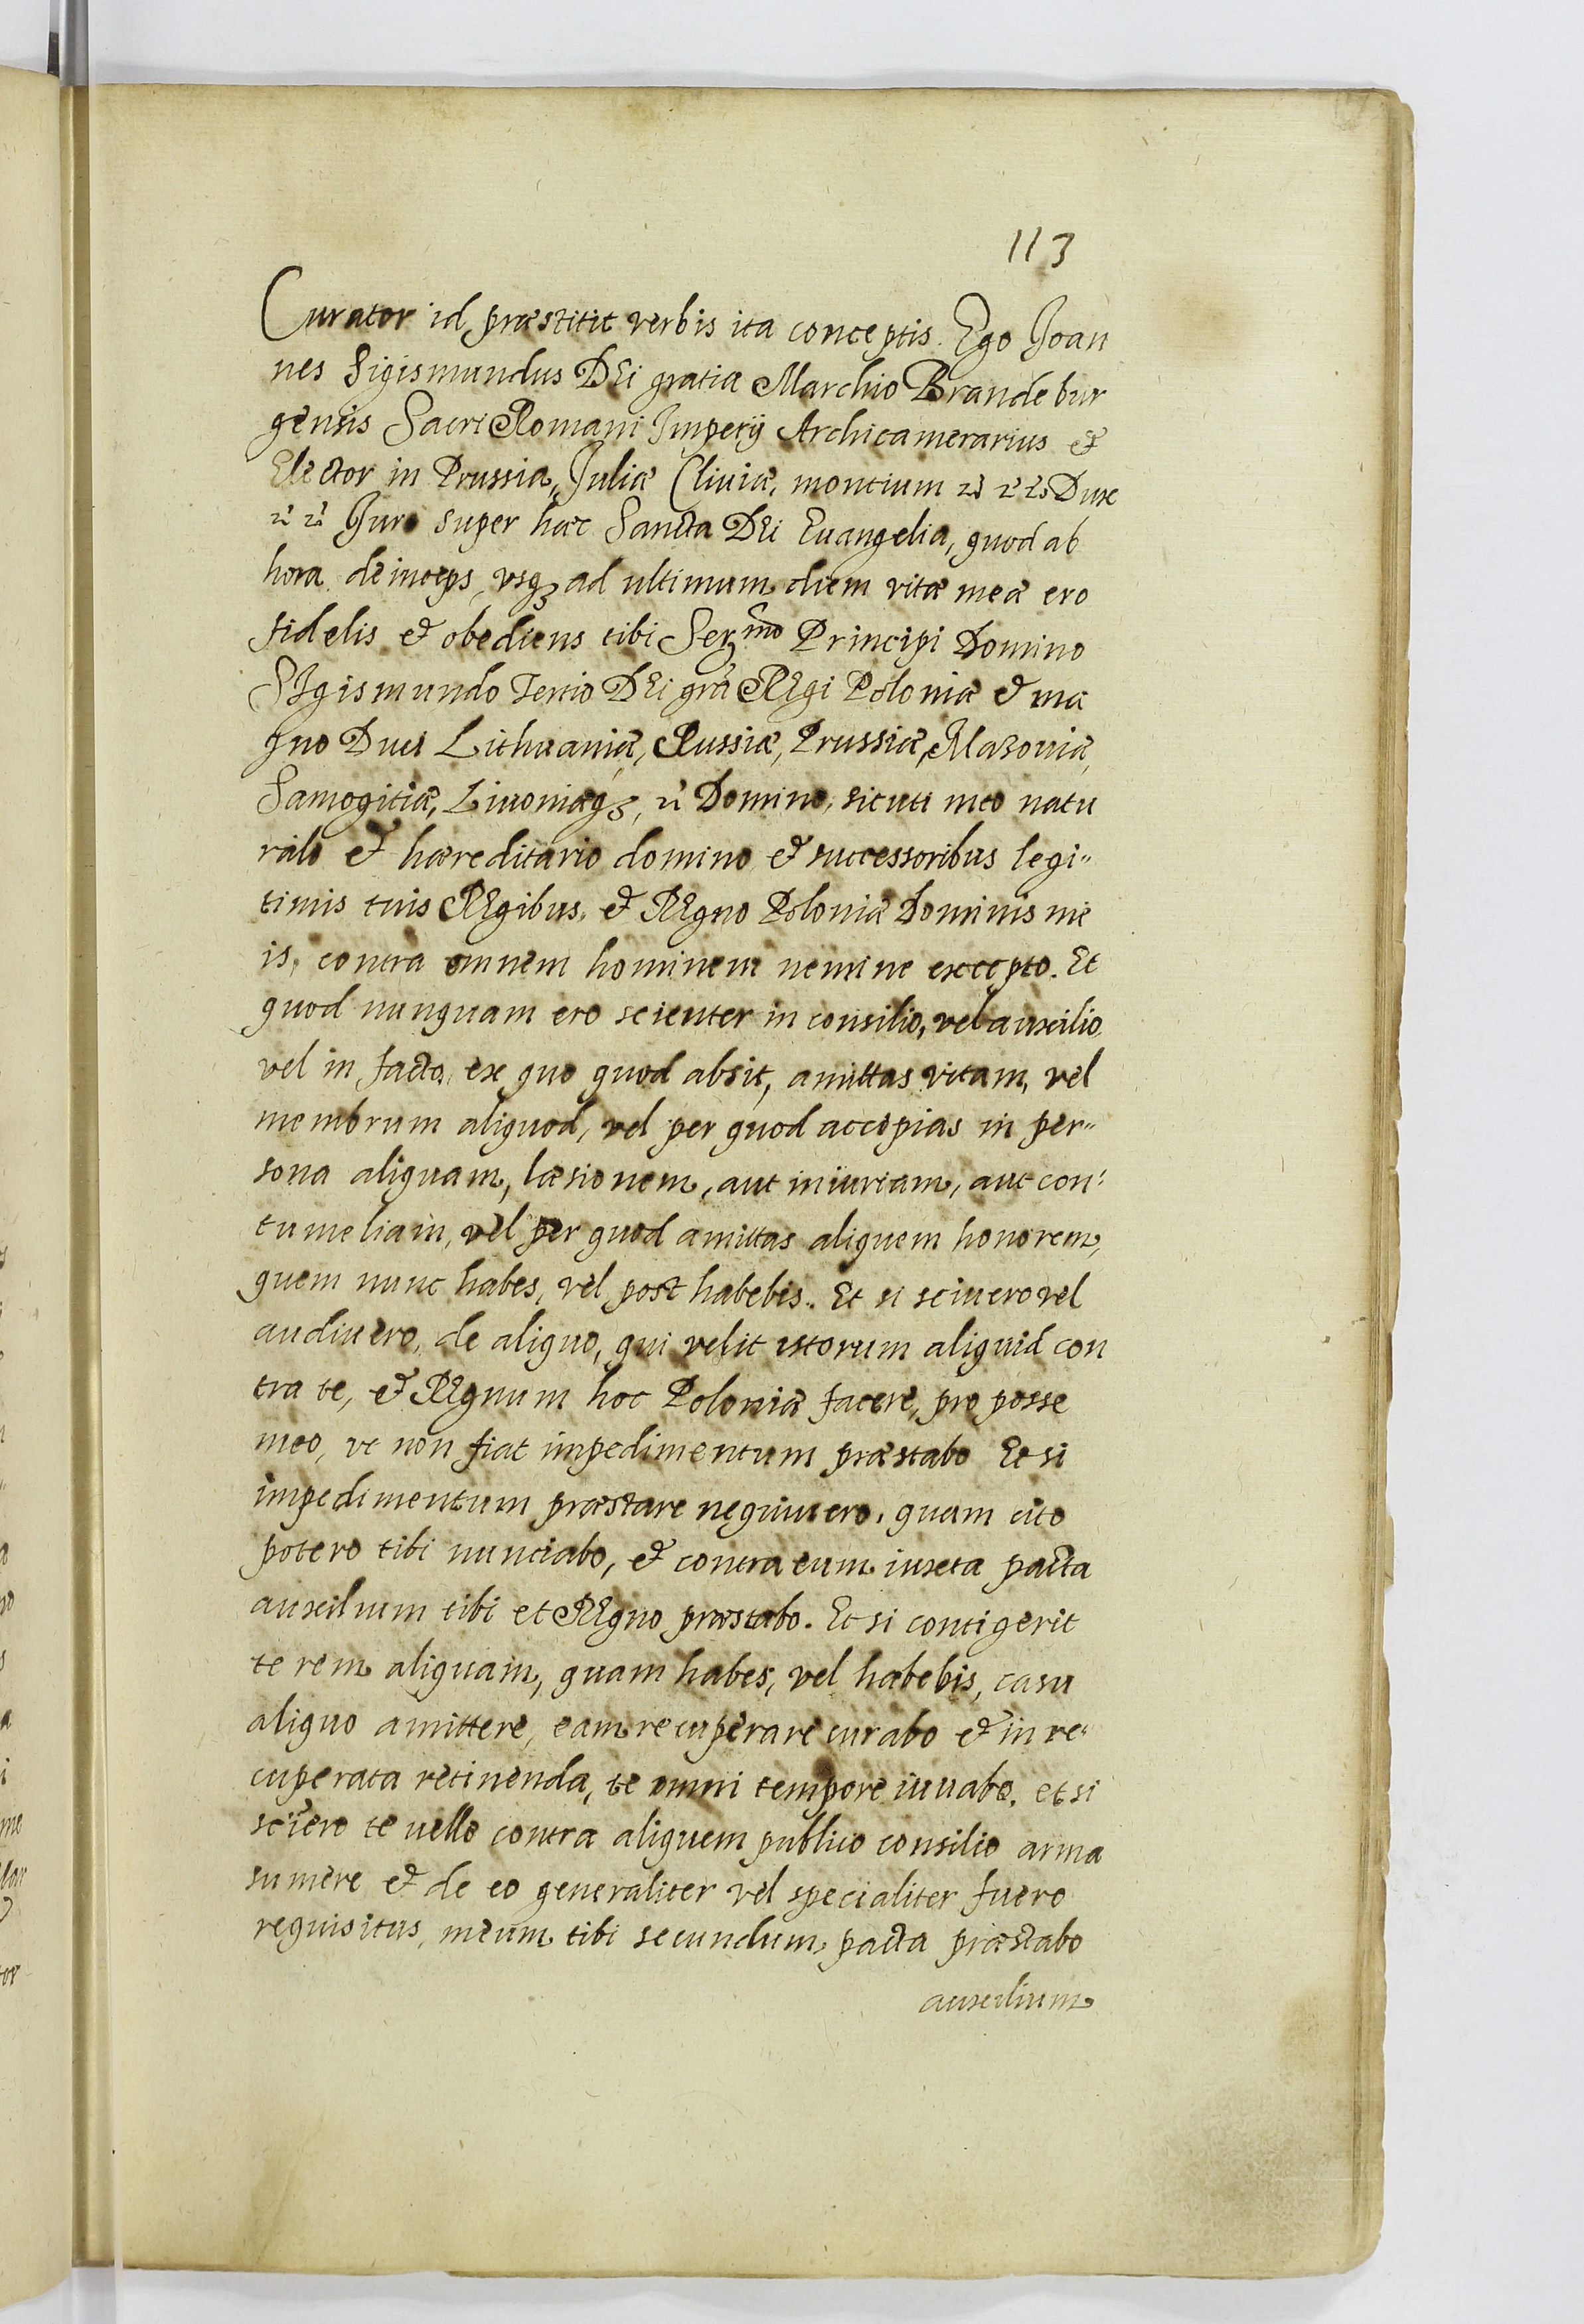 113
Curator id præstitit verbis ita conceptis. Ego Joan
nes Sigismundus DEi gratia Marchio Brandebur
gensis Sacri Romani Imperij Archicamerarius &
Elector in Prussia, Juliæ Cliuiæ, montium Dux
Juro super hæc Sancta DEi Euangelia, quod ab
hora deinceps, vsqȝ ad ultimum diem vitæ meæ ero
fidelis & obediens tibi Serᵐᵒ Principi Domino
SIgismundo Tertio DEi grã REgi Poloniæ & ma
gno Duci Lithuaniæ, Russiæ, Prussiæ, Mazoniæ,
Samogitiæ, Liuoniæqȝ, Domino, sicuti meo natu
rali & hæreditario domino & successoribus legi"
timis tuis REgibus, & REgno Poloniæ Dominis me
is, contra omnem hominem nemine excepto. Et
quod nunquam ero scienter in consilio, vel auxilio
vel in facto, ex quo quod absit, amittas vitam, vel
membrum aliquod, vel per quod accipias in per"
sona aliquam, læsionem, aut iniuriam, aut con:
tumeliam, vel per quod amittas aliquem honorem,
quem nunc habes, vel post habebis. Et si sciuero vel
audiuero, de aliquo, qui velit istorum aliquid con
tra te, & REgnum hoc Poloniæ facere, pro posse
meo, vt non fiat impedimentum præstabo Et si
impedimentum præstare nequiuero, quam cito
potero tibi nunciabo, & contra eum iuxta pacta
auxilium tibi et REgno præstabo. Et si contigerit
te rem aliquam, quam habes, vel habebis, casu
aliquo amittere, eam recuperare curabo & in re"
cuperata retinenda, te omni tempore iuuabo, et si
sciero te velle contra aliquem publico consilio arma
sumere & de eo generaliter vel specialiter fuero
requisitus, meum tibi secundum, pacta præstabo
auxilium